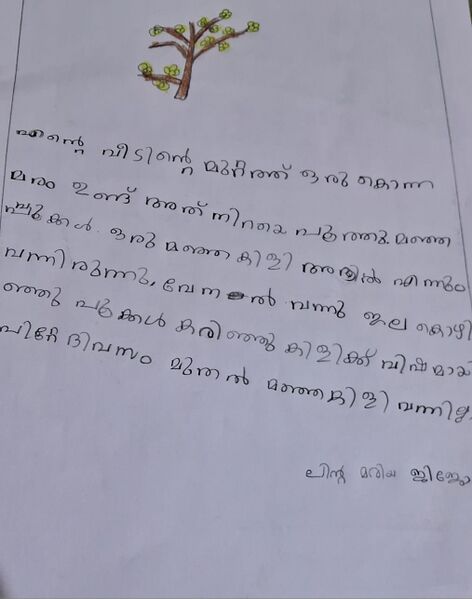 എന്റെ വീടിന്റെ മുറ്റത്ത് ഒരു കൊന്ന
മരം ഉണ്ട് അത് നിറയെ പൂത്തു. മഞ്ഞ
പ്പൂക്കൾ. ഒരു മഞ്ഞ കിളി അതിൽ എന്നും
വന്നിരുന്നു, വേനൽ വന്നു ഇല കൊഴി
ഞ്ഞു പൂക്കൾ കരിഞ്ഞു കിളിക്ക് വിഷമായി
പിറ്റേ ദിവസം മുതൽ മഞ്ഞകിളി വന്നില്ല.
ലിന്റ മരിയ ജിജോ